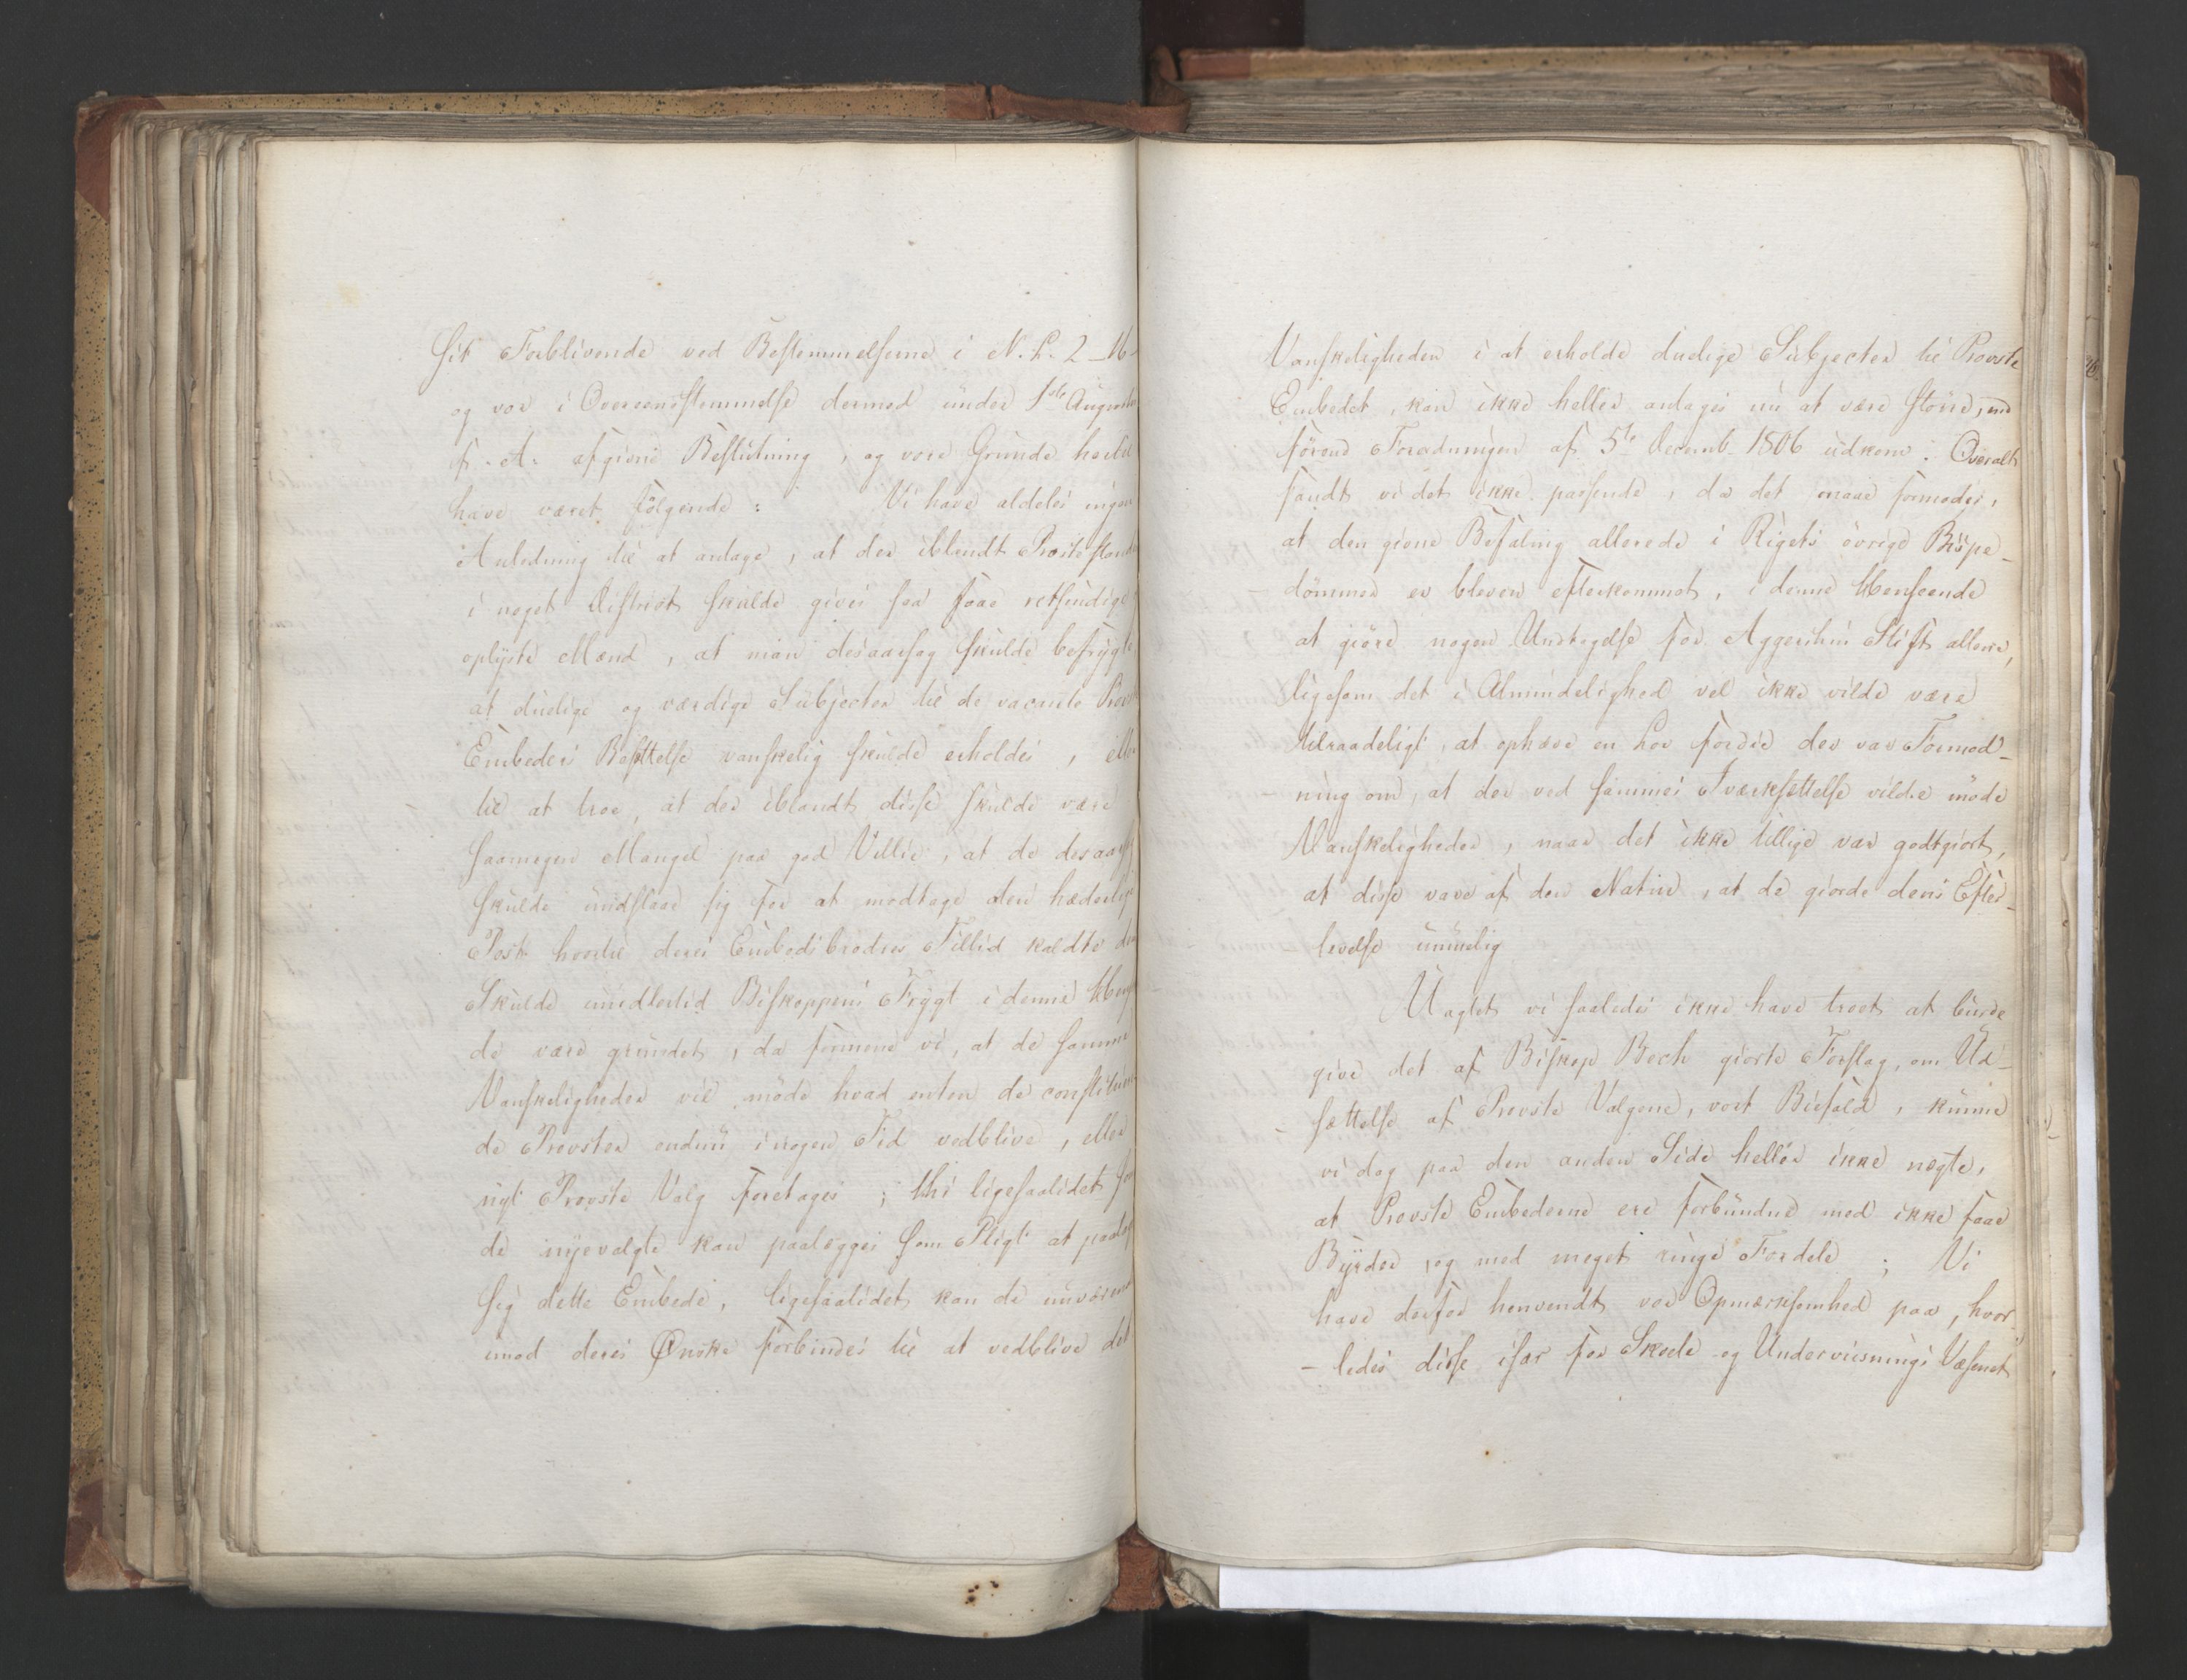 sit Forblivende ved Bestemmelserne i N. L. 2 - 16 -
og vor i Overeensstemmelse dermed under 1ste Augusti
f. A. afgivne Beslutning, og vore Grunde hertil
have været følgende: Vi have aldeles ingen
Anledning til at antage, at der iblandt Præste standen
i noget District skulde gives saa faae retsindige
oplyste Mænd, at man desaarsag skulde befrygte,
at duelige og værdige Subjecter til de vacante Provste
Embeders Besættelse vanskelig skulde erholdes, eller
til at troe, at der iblandt disse skulde være
saamegen Mangel paa god Villie, at de desaarsag
skulde undslaae sig for at modtage den hæderlige
Post hvortil deres Embedsbrødres Tillid kaldte dem
Skulde imidlertid Biskoppens Frygt i denne Henseen
de være grundet, da formene vi, at de samme
Vanskeligheder vil møde hvad enten de constituere
de Provster endnu i nogen Tid vedblive, eller
nyt Provste Valg foretages; thi ligesaalidet som
de nyevalgte kan paalægges som Pligt at paatage
sig dette Embede, ligesaalidet kan de nuværende
imod deres Ønske forbindes til at vedblive det
Vanskeligheden i at erholde duelige Subjecter til Provste
Embedet, kan ikke heller antages nu at være større, end
førend Forordningen af 5te Decemb. 1806 udkom. Overalt
fandt vi det ikke passende, da det maae formodes,
at den givne Befaling allerede i Rigets övrige Bispe-
dömmer er bleven efterkommet, i denne Henseende
at giöre nogen Undtagelse for Aggershuus Stift allene,
ligesom det i Almindelighed vel ikke vilde være
tilraadeligt, at ophæve en Lov fordie der var Formod-
ning om, at der ved sammes Iværksættelse vilde möde
Vanskeligheder, naar det ikke tillige var godtgiort,
at disse vare af den Natur, at de giorde dens Efter-
levelse umuelig
Uagtet vi saaledes ikke have troet at burde
give det af Biskop Bech giorte Forslag, om Ud-
sættelse af Provste Valgene, vort Biefald, kunne
vi dog paa den anden Side heller ikke nægte,
at Provste Embederne ere forbundne med ikke faae
Byrder og med meget ringe Fordele; Vi
have derfor henvendt vor Opmærksomhed paa, hvor-
ledes disse især for Skole og Underviisnings Væsenet